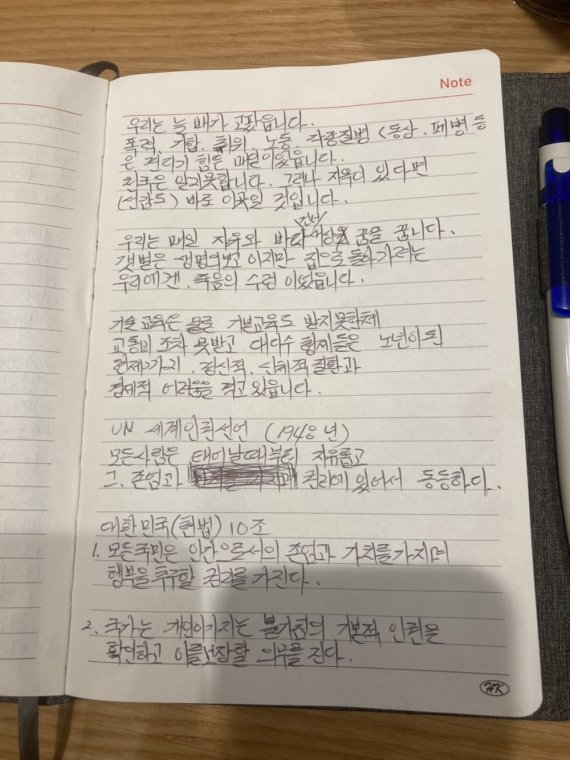 Note
우리는 늘 배가 고팠읍니다.
폭력, 기합, 추위, 노동, 각종질병 (동상, 폐병 등
은 견디기 힘든 매일이였읍니다.
지옥은 알지못합니다. 그러나 지옥이 있다면
(선감도) 바로 이곳일 것입니다.
우리는 매일 자유와 바다 세상 꿈을 꿉니다.
갯벌은 생명의보고 이지만 집으로 돌아가려는
우리에겐, 죽음의 수렁 이였읍니다.
기술 교육은 물론 기본교육도 받지못한체
교통비 조차 못받고 대다수 형제들은 노년이된
현제까지, 정신적, 신체적 질환과
경제적 어려움을 격고 있읍니다.
UN 세계인권선언 (1948년)
모든사람은 태어날때부터 자유롭고
그. 존엄과 권리에 있어서 동등하다.
대한민국(헌법) 10조
1. 모든국민은 인간으로서의 존엄과 가치를가지며
행복을추구할 권리를 가진다.
2. 국가는 개인이가지는 불가침의 기본적 인권을
확인하고 이를보장할 의무를 진다.